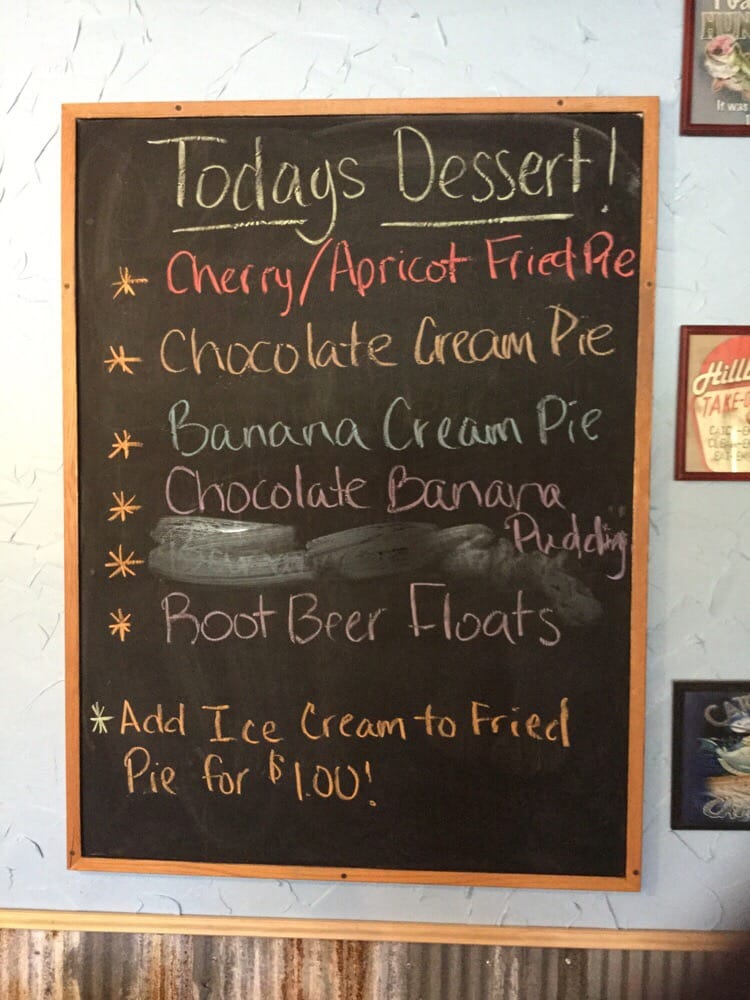 Todays Dessert!
* Cherry/Apricot Fried Pie
* Chocolate Cream Pie
* Banana Cream Pie
* Chocolate Banana
Pudding
*
* Root Beer Floats
* Add Ice Cream to Fried
Pie for $1.00!
It was
Hillb
TAKE-O